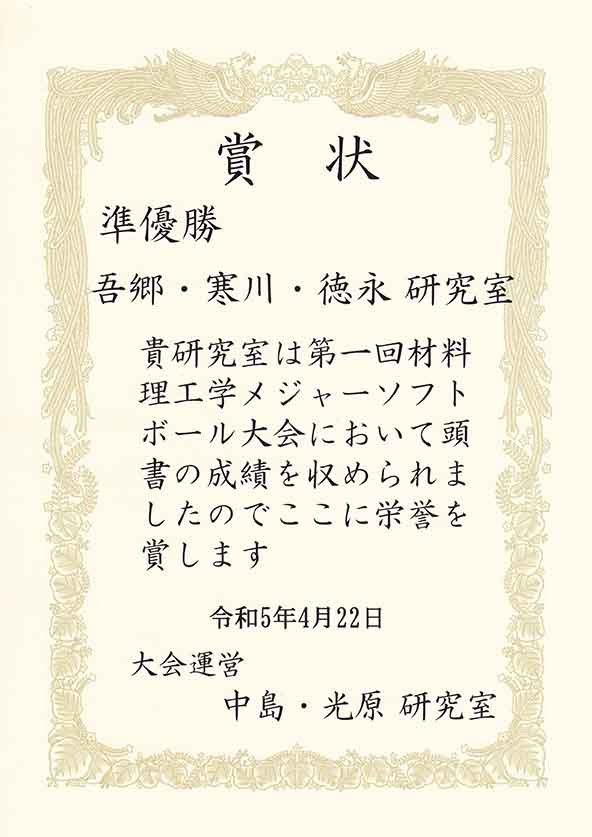 賞 状
準優勝
吾郷・寒川・徳永 研究室
貴研究室は第一回材料
理工学メジャーソフト
ボール大会において頭
書の成績を収められま
したのでここに栄誉を
賞します
令和5年4月22日
大会運営
中島・光原 研究室